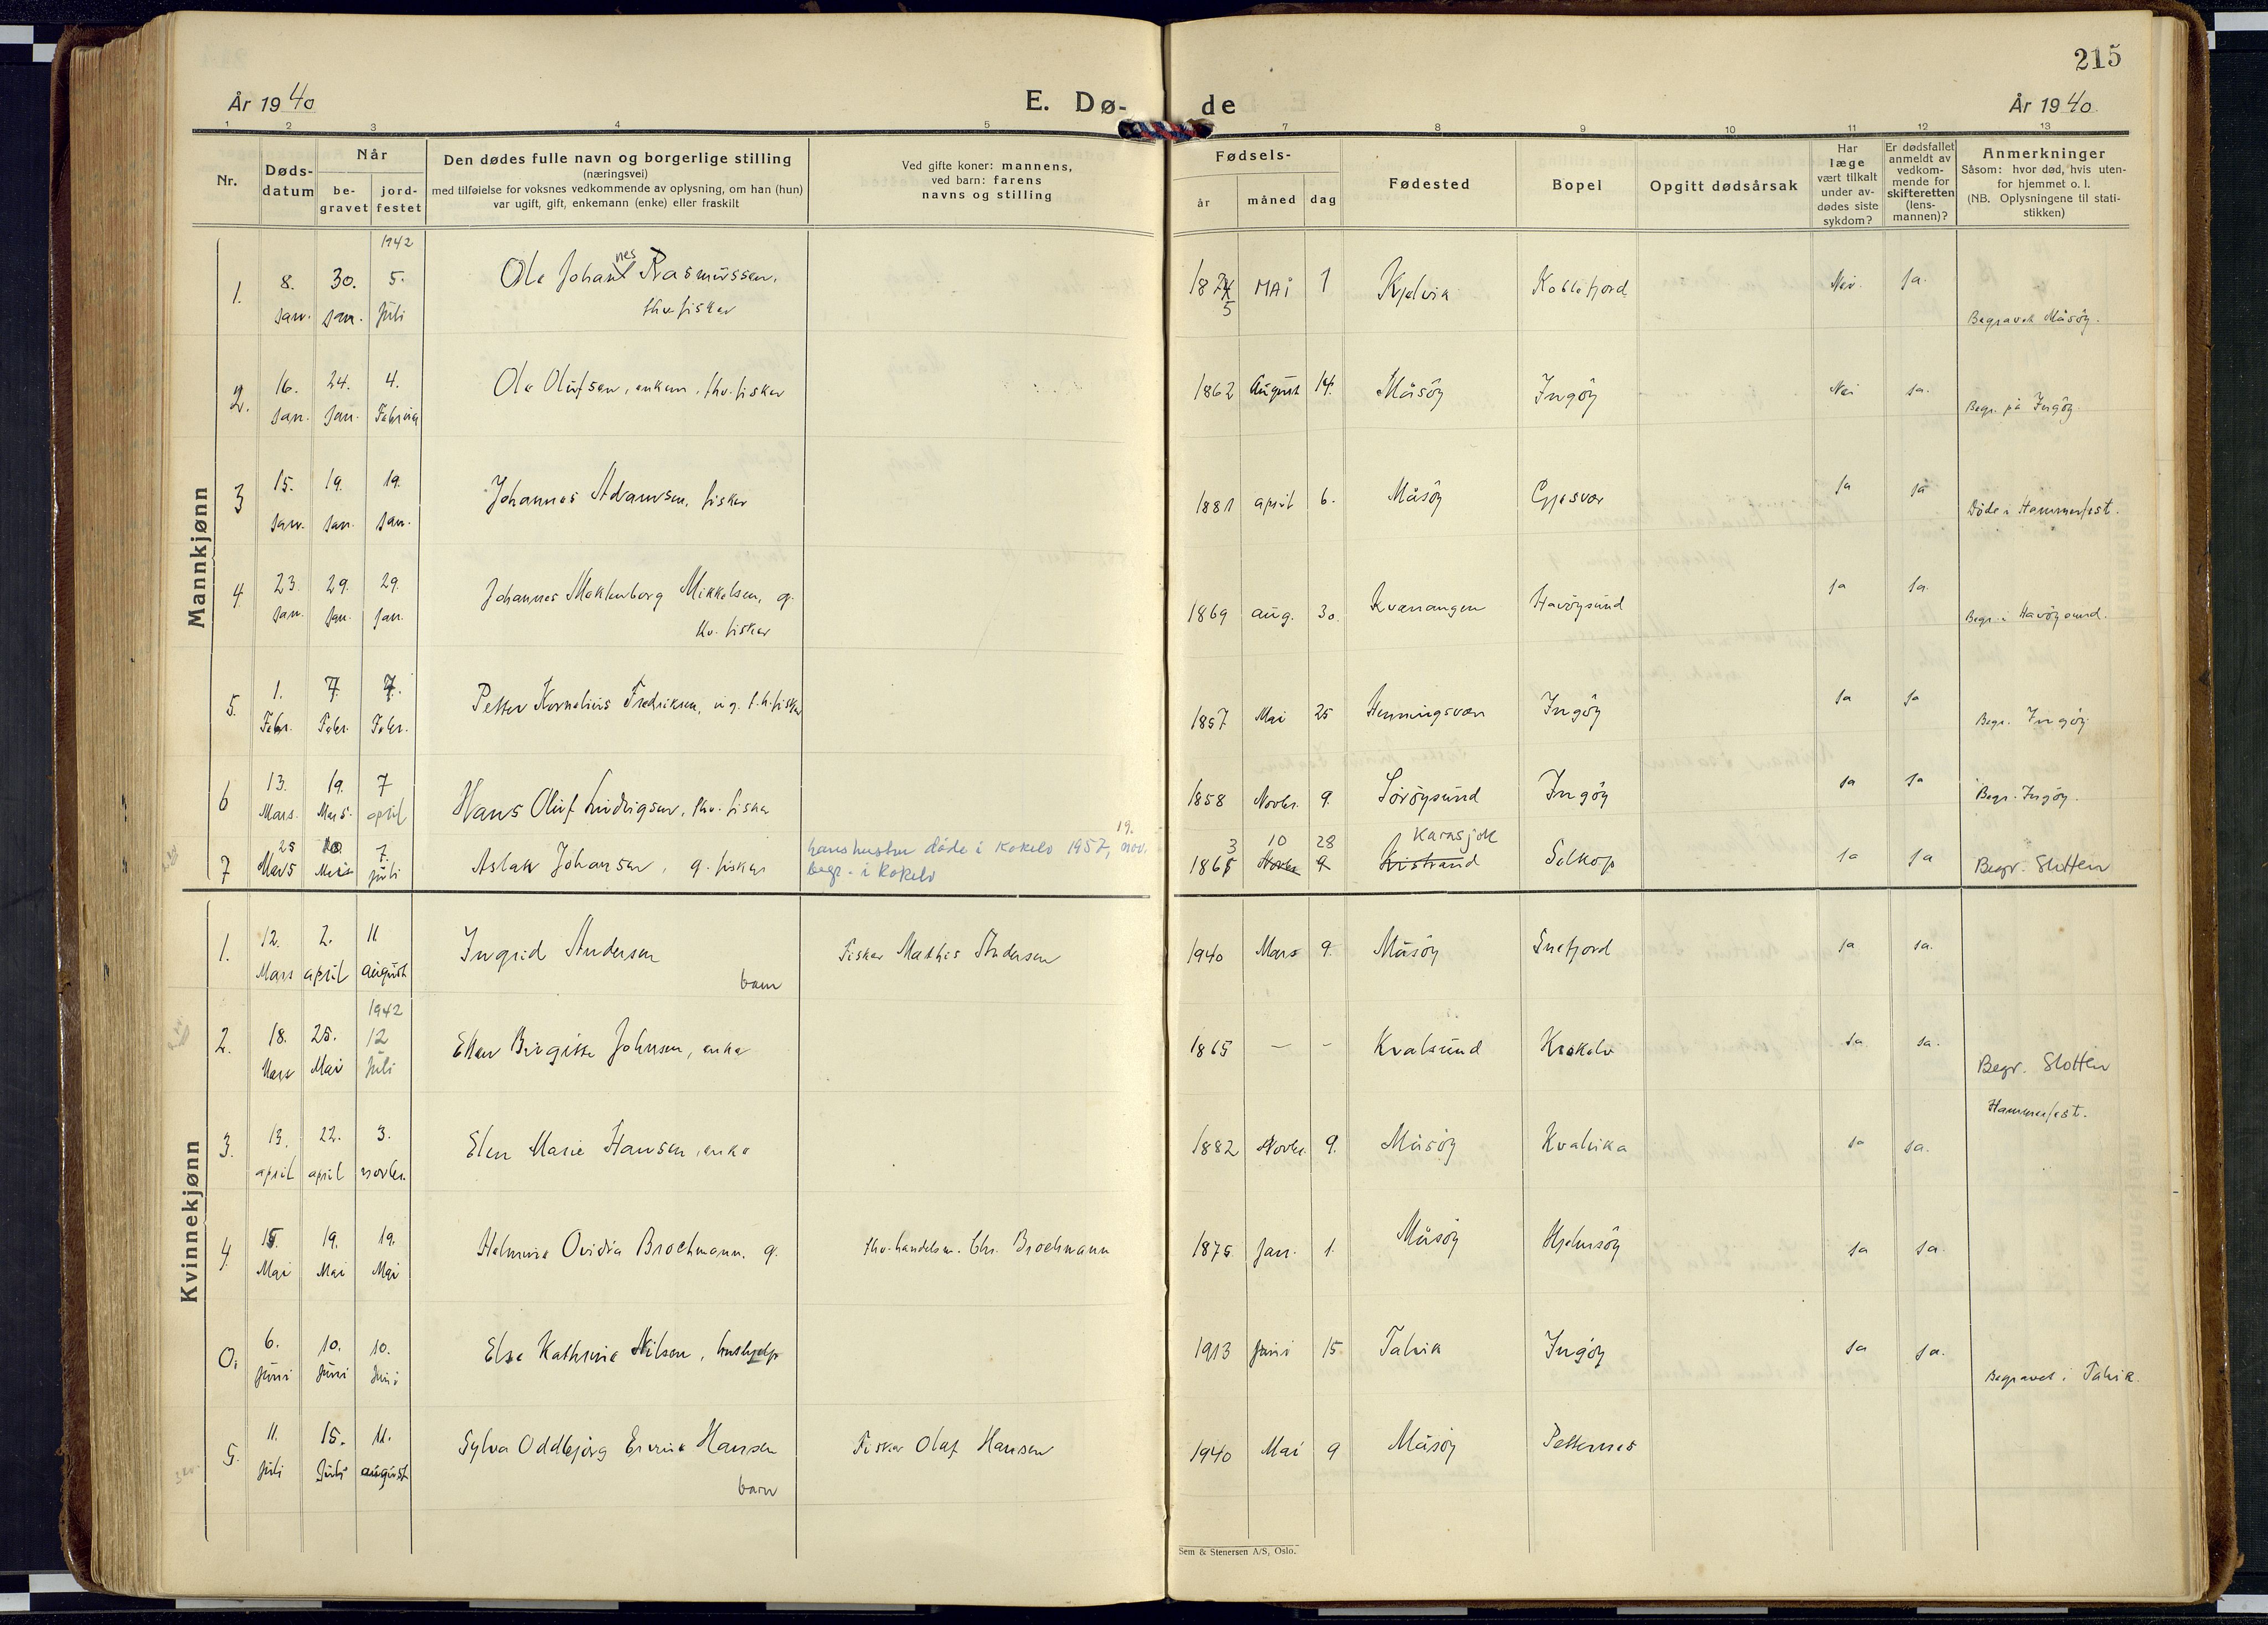 215
År 1940
E. Dø-
de
År 1940
1 2 3 4 5 7 8 9 10 11 12 13
Nr.
Døds-
datum
Når
be-
gravet
jord-
festet
Den dødes fulle navn og borgerlige stilling
(næringsvei)
med tilføielse for voksnes vedkommende av oplysning, om han (hun)
var ugift, gift, enkemann (enke) eller fraskilt
Ved gifte koner: mannens,
ved barn: farens
navns og stilling
Fødsels-
år måned dag
Fødested
Bopel
Opgitt dødsårsak
Har
læge
vært tilkalt
under av-
dødes siste
sykdom?
Er dødsfallet
anmeldt av
vedkom-
mende for
skifteretten
(lens-
mannen)?
Anmerkninger
Såsom: hvor død, hvis uten-
for hjemmet o. l.
(NB. Oplysningene til stati-
stikken)
Mannkjønn
1942
1. 8. 30. 5. Ole Johannes Rasmussen, 1875 MAI 1 Kjelvik Nei. Ja.
Jan. Jan. Juli fhv. fisker Begravet Måsöy.
2. 16. 24. 4. Ole Olufsen, enkem., fhv. fisker 1862 August 14. Måsöy Ingöy Nei Ja.
Jan. Jan. Februar Begr. på Ingöy.
3 15. 19. 19. Johannes Adamsen, fisker 1881 april 6. Måsöy Gjesvær Ja Ja
Jan. Jan. Jan. Döde i Hammerfest.
4. 23. 29. 29. Johannes Meklenborg Mikkelsen, g. 1869 aug. 30. Kvænangen Havöysund Ja Ja.
Jan. Jan. Jan. fhv. fisker Begr. i Havöysund.
5. 1. 7. 7. Petter Kornelius Fredriksen, ug. f.h. fisker 1857 Mai 25 Henningsvær Ingöy Ja Ja
Febr. Febr. Febr. Begr. Ingöy.
6 13. 19. 7 Hans Oluf Ludvigsen, fhv. fisker 1858 Novbr. 9. Söröysund Ingöy Ja Ja
Mars. Mars. april Begr. Ingöy.
19.
7 25 7. Aslak Johansen, g. fisker hans hustru døde i Kokelv 1957, nov. 3 10 28 Karasjok
Mars Mars juli begr. i Kokelv 1865 Novbr 9 Kistrand Selkop Ja Ja Begr. Slotten
Kvinnekjønn
1. 12. 2. 11 Ingrid Andersen Fisker Mathis Andersen 1940 Mars 9. Måsöy Snefjord Ja Ja.
Mars april august barn
1942
2. 18. 25. 12 Ellen Birgitte Johnsen, enke 1865 - - Kvalsund Kokelv Ja Ja.
Mars Mai Juli Begr. Slotten
Hammerfest.
3. 13. 22. 3. Elen Marie Hansen, enke 1882 Novbr. 9. Måsöy Kvalvika Ja Ja.
april april novbr.
4. 15. 19. 19. Helmine Ovidia Brochmann, g. fhv. handelsm. Chr. Brochmann 1875. Jan. 1. Måsöy Hjelmsöy Ja Ja.
Mai Mai Mai
0. 6. 10. 10. Else Kathrine Nilsen, hushjelp 1913 Juni 15 Talvik Ingöy Ja Ja.
Juni Juni Juni Begravet i Talvik.
5. 11. 15. 11. Sylva Oddbjörg Hansen Fisker Olaf Hansen 1940 Mai 9 Måsöy Petternes
Juli Juli august
barn
Sem & Stenersen A/S, Oslo.